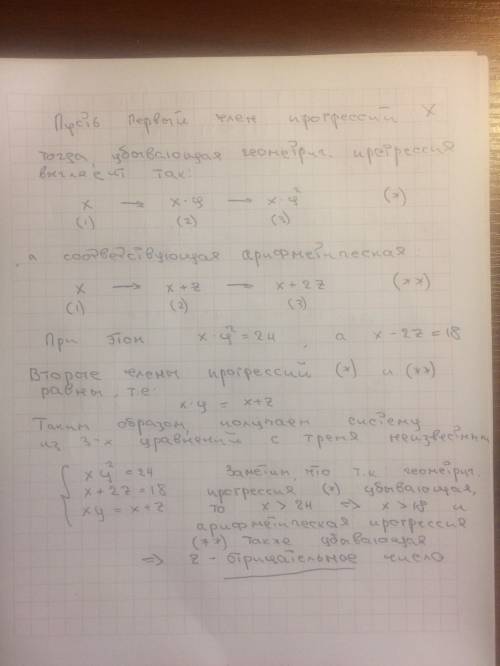 Пусть первый член прогрессий X
тогда, убывающая геометрич. прогрессия
выгляет так:
x → x·y → x·y² (*)
(1) (2) (3)
а соответствующая арифметическая:
x → x+z → x+2z (**)
(1) (2) (3)
При этом x·y²=24, а x-2z=18
Вторые члены прогрессий (*) и (**)
равны, т.е.
x·y = x+z
Таким образом, получаем систему
из 3-х уравнений с тремя неизвестным
{ xy²=24 Заметим, что т.к. геометрич.
x+2z=18 прогрессия (*) убывающая,
xy=x+z то x>24 => x>18 и
арифметическая прогрессия
(**) также убывающая
=> z - отрицательное число